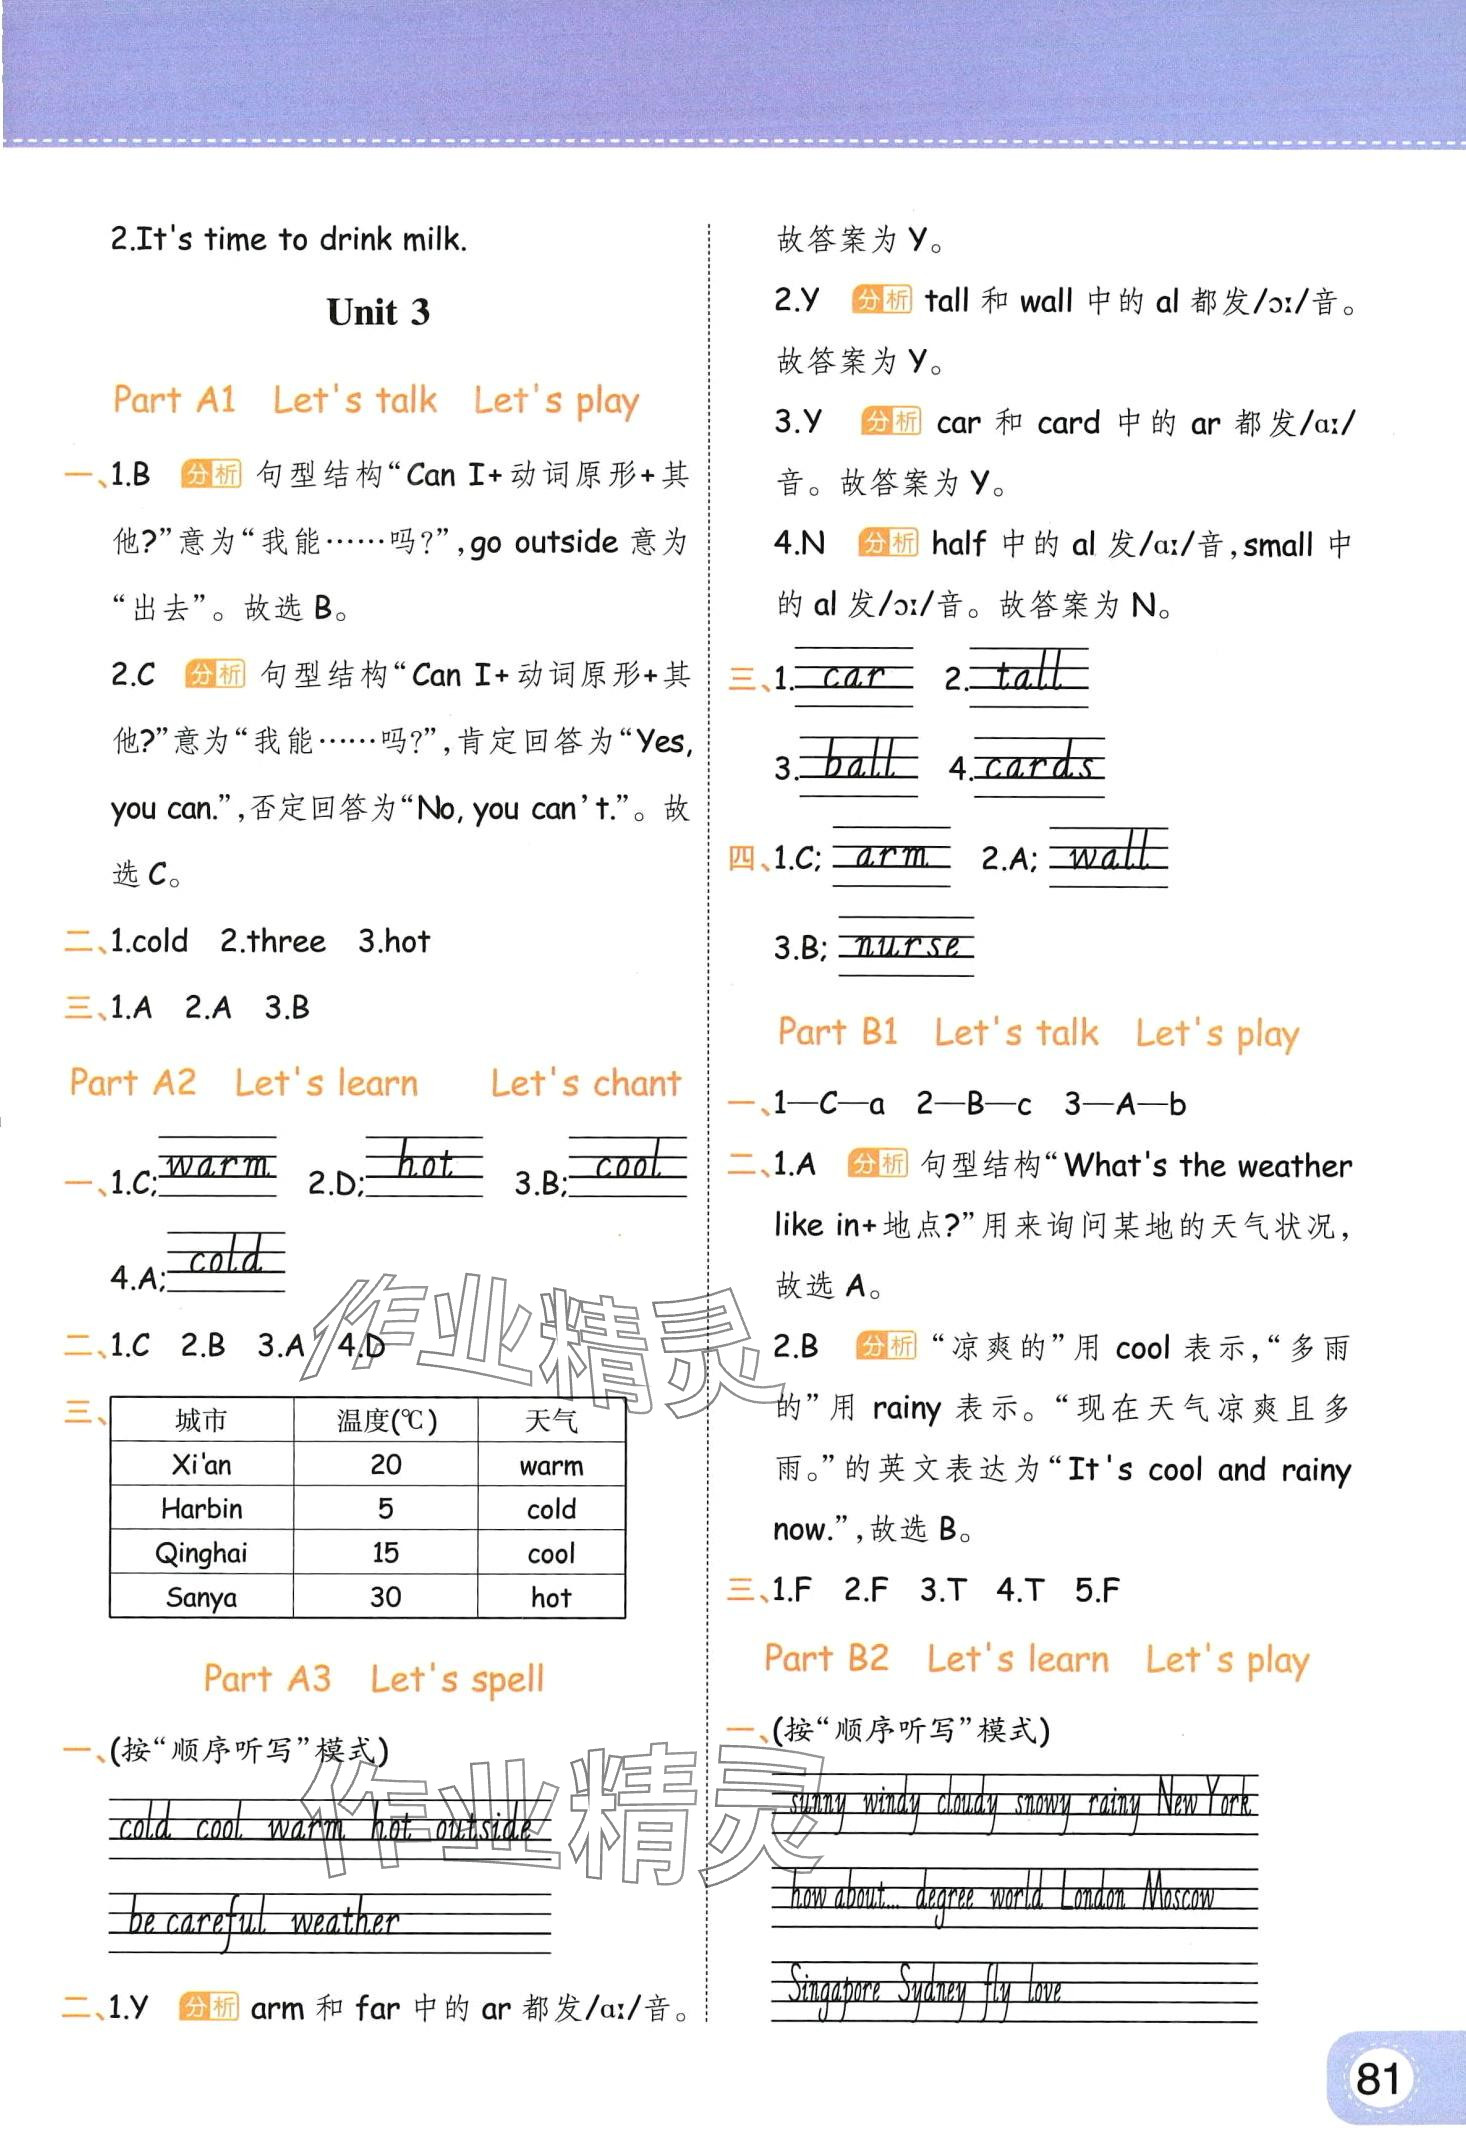 2.It's time to drink milk.
Unit 3
Part A1 Let's talk Let's play
一、1.B 分析 句型结构“Can I+动词原形+其
他?”意为“我能……吗?”,go outside意为
“出去”。故选B。
2.C 分析 句型结构“Can I+动词原形+其
他?”意为“我能……吗?”,肯定回答为“Yes,
you can.”,否定回答为“No, you can't.”。故
选C。
二、1.cold 2.three 3.hot
三、1.A 2.A 3.B
Part A2 Let's learn Let's chant
一、1.C; warm 2.D; hot 3.B; cool
4.A; cold
二、1.C 2.B 3.A 4.D
三、城市 温度(℃) 天气
Xi'an 20 warm
Harbin 5 cold
Qinghai 15 cool
Sanya 30 hot
Part A3 Let's spell
一、(按“顺序听写”模式)
cold cool warm hot outside
be careful weather
二、1.Y 分析 arm 和 far 中的 ar 都发/ɑː/音。
故答案为Y。
2.Y 分析 tall 和 wall 中的 al 都发/ɔː/音。
故答案为Y。
3.Y 分析 car 和 card 中的 ar 都发/ɑː/
音。故答案为Y。
4.N 分析 half 中的 al 发/ɑː/音,small 中
的 al 发/ɔː/音。故答案为N。
三、1. car 2. tall
3. ball 4. cards
四、1.C; arm 2.A; wall
3.B; nurse
Part B1 Let's talk Let's play
一、1—C—a 2—B—c 3—A—b
二、1.A 分析 句型结构“What's the weather
like in+地点?”用来询问某地的天气状况,
故选A。
2.B 分析 “凉爽的”用 cool 表示,“多雨
的”用 rainy 表示。“现在天气凉爽且多
雨。”的英文表达为“It's cool and rainy
now.”,故选B。
三、1.F 2.F 3.T 4.T 5.F
Part B2 Let's learn Let's play
一、(按“顺序听写”模式)
sunny windy cloudy snowy rainy New York
how about... degree world London Moscow
Singapore Sydney fly love
81
作业精灵
作业精灵